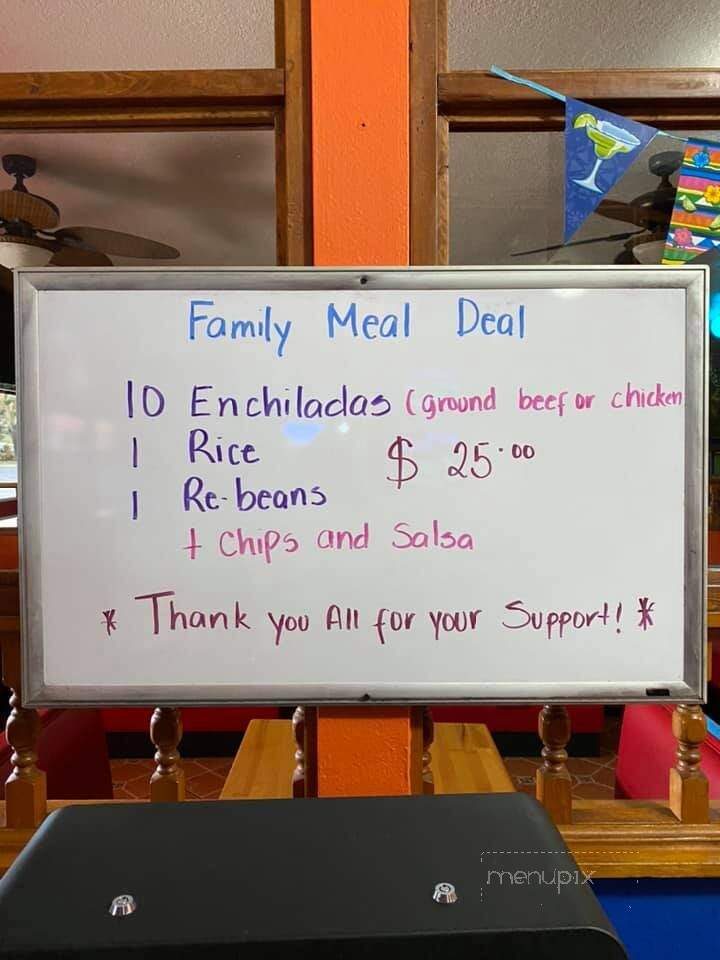 Family Meal Deal
10 Enchiladas (ground beef or chicken
1 Rice $ 25.00
1 Re-beans
+ Chips and Salsa
* Thank you All for your Support! *
menupix